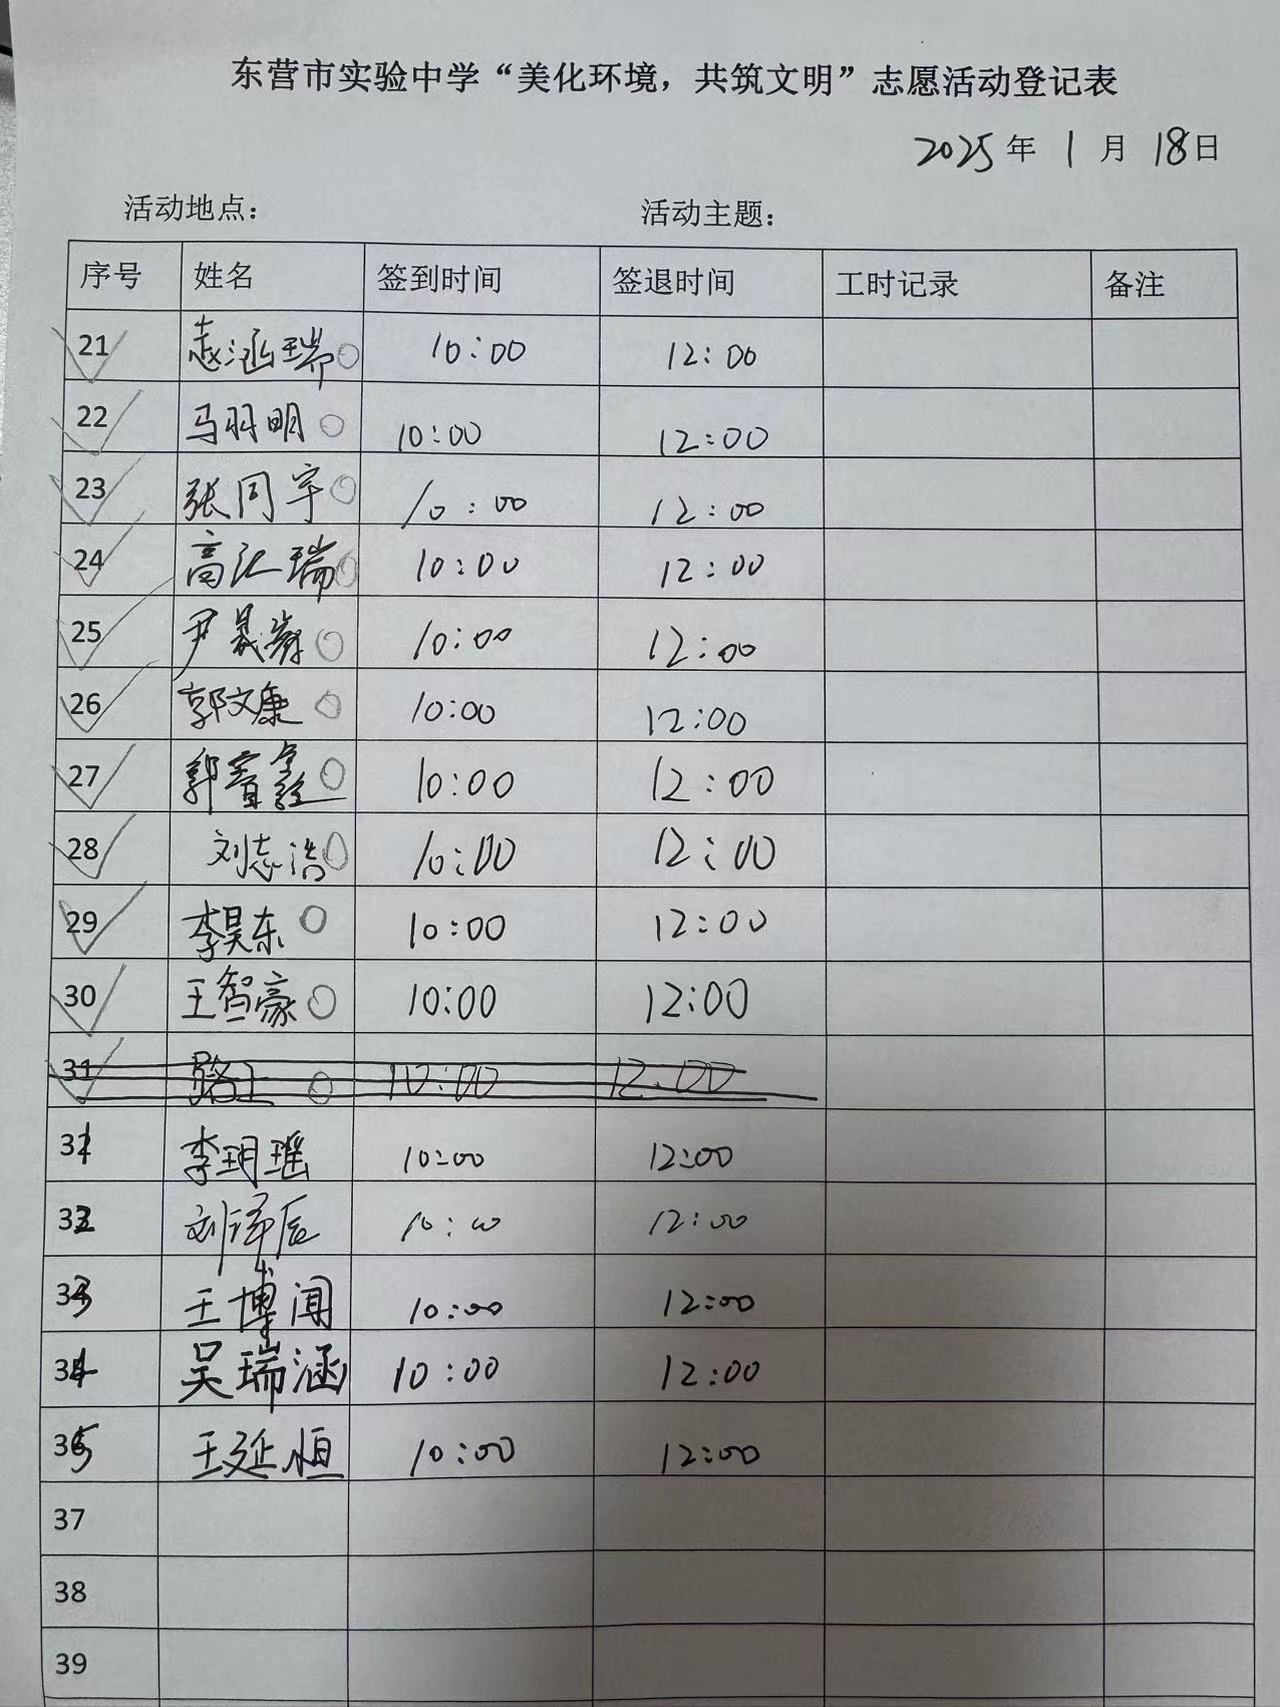 东营市实验中学“美化环境，共筑文明”志愿活动登记表
2025年 1月 18日
活动地点： 活动主题：
序号 姓名 签到时间 签退时间 工时记录 备注
21 赵涵瑞 10:00 12:00
22 马羽明 10:00 12:00
23 张同宇 10:00 12:00
24 高汇瑞 10:00 12:00
25 尹晟 10:00 12:00
26 郭文康 10:00 12:00
27 郭 鑫 10:00 12:00
28 刘志浩 10:00 12:00
29 李昊东 10:00 12:00
30 王智豪 10:00 12:00
31 10:00 12:00
31 李玥瑶 10:00 12:00
32 刘泽辰 10:00 12:00
33 王博闻 10:00 12:00
34 吴瑞涵 10:00 12:00
35 王延恒 10:00 12:00
37
38
39